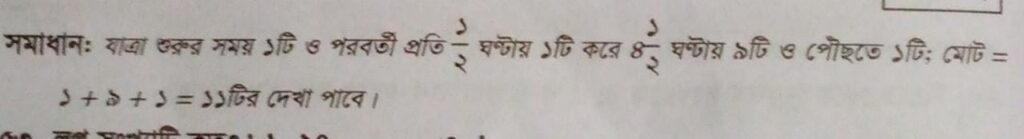 সমাধান: যাত্রা শুরুর সময় ১টি ও পরবর্তী প্রতি ১/২ ঘণ্টায় ১টি করে ৪ ১/২ ঘণ্টায় ৯টি ও পৌছতে ১টি; মোট =
১ + ৯ + ১ = ১১টির দেখা পাবে।